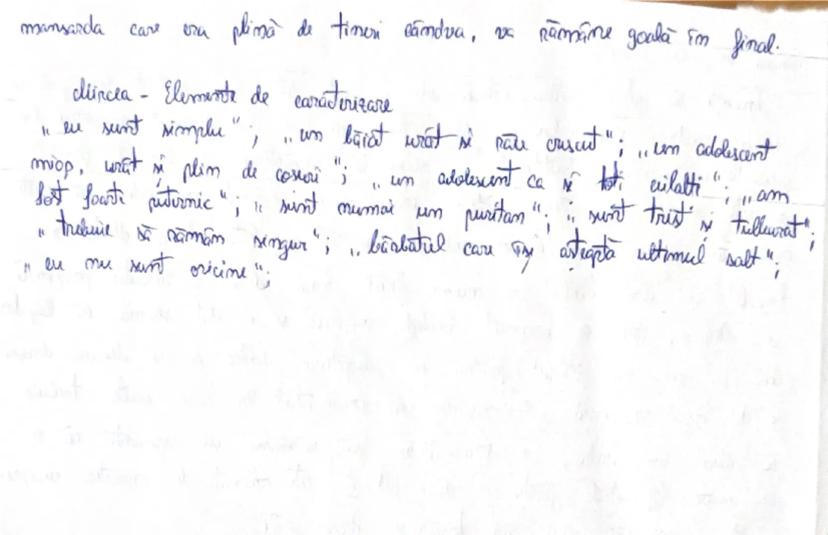 mansarda care era plină de tineri cândva, va rămâne goală în final.
Mircea - Elemente de caracterizare
"eu sunt simplu"; "un băiat urât și rău crescut"; "un adolescent
miop, urât și plin de coșuri"; "un adolescent ca și toți ceilalți"; "am
fost foarte puternic"; "sunt numai un puritan"; "sunt trist și tulburat";
"trebuie să rămân singur"; "bărbatul care își așteaptă ultimul salt";
"eu nu sunt oricine";